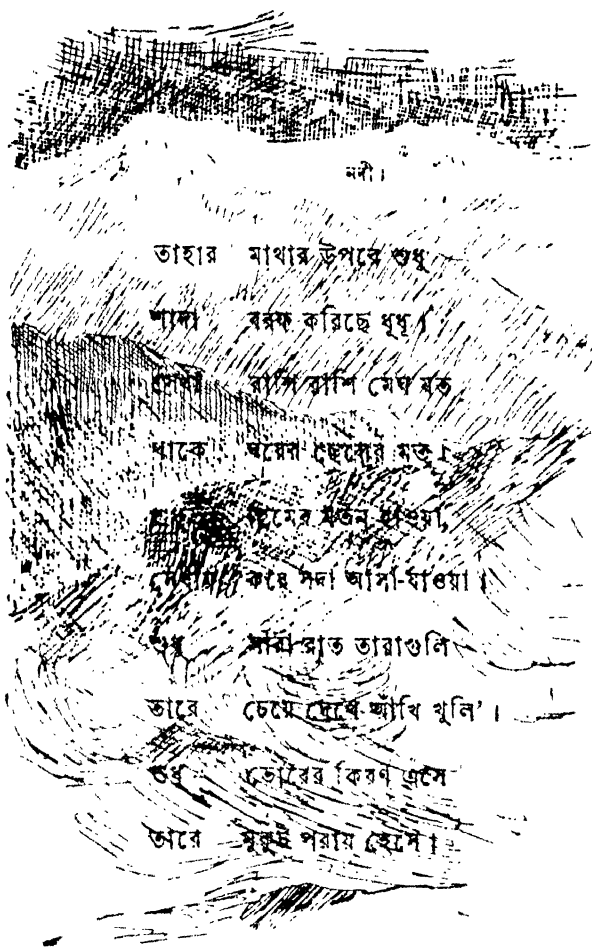 নদী।
তাহার মাথার উপরে শুধু
শাদা বরফ করিছে ধূধূ।
সেথা রাশি রাশি মেঘ যত
থাকে ঘরের ছেলের মত।
হিমের মতন হাওয়া,
সেথায় করে সদা আসা-যাওয়া।
শুধু সারা রাত তারাগুলি
তারে চেয়ে দেখে আঁখি খুলি'।
শুধু ভোরের কিরণ এসে
তারে মুকুট পরায় হেসে।